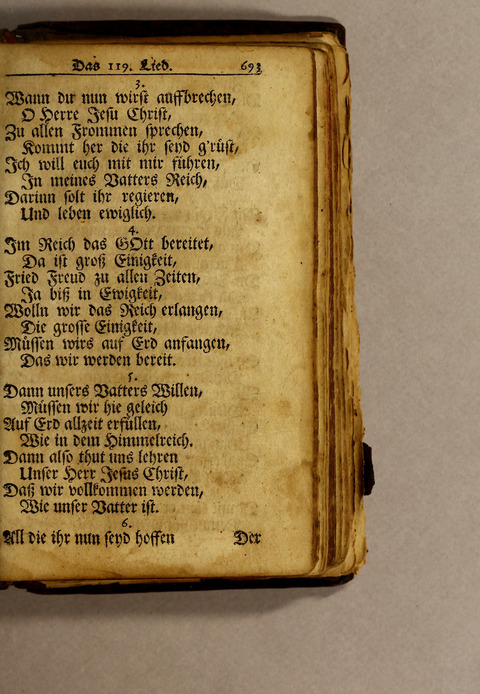 Das 119. Lied. 693
3.
Wann du nun wirst auffbrechen,
O Herre Jesu Christ,
Zu allen Frommen sprechen,
Kommt her die ihr seyd g'rüst,
Ich will euch mit mir führen,
In meines Vatters Reich,
Darinn solt ihr regieren,
Und leben ewiglich.
4.
Im Reich das GOtt bereitet,
Da ist groß Einigkeit,
Fried Freud zu allen Zeiten,
Ja biß in Ewigkeit,
Wolln wir das Reich erlangen,
Die grosse Einigkeit,
Müssen wirs auf Erd anfangen,
Das wir werden bereit.
5.
Dann unsers Vatters Willen,
Müssen wir hie geleich
Auf Erd allzeit erfüllen,
Wie in dem Himmelreich.
Dann also thut uns lehren
Unser Herr Jesus Christ,
Daß wir vollkommen werden,
Wie unser Vatter ist.
6.
All die ihr nun seyd hoffen Der